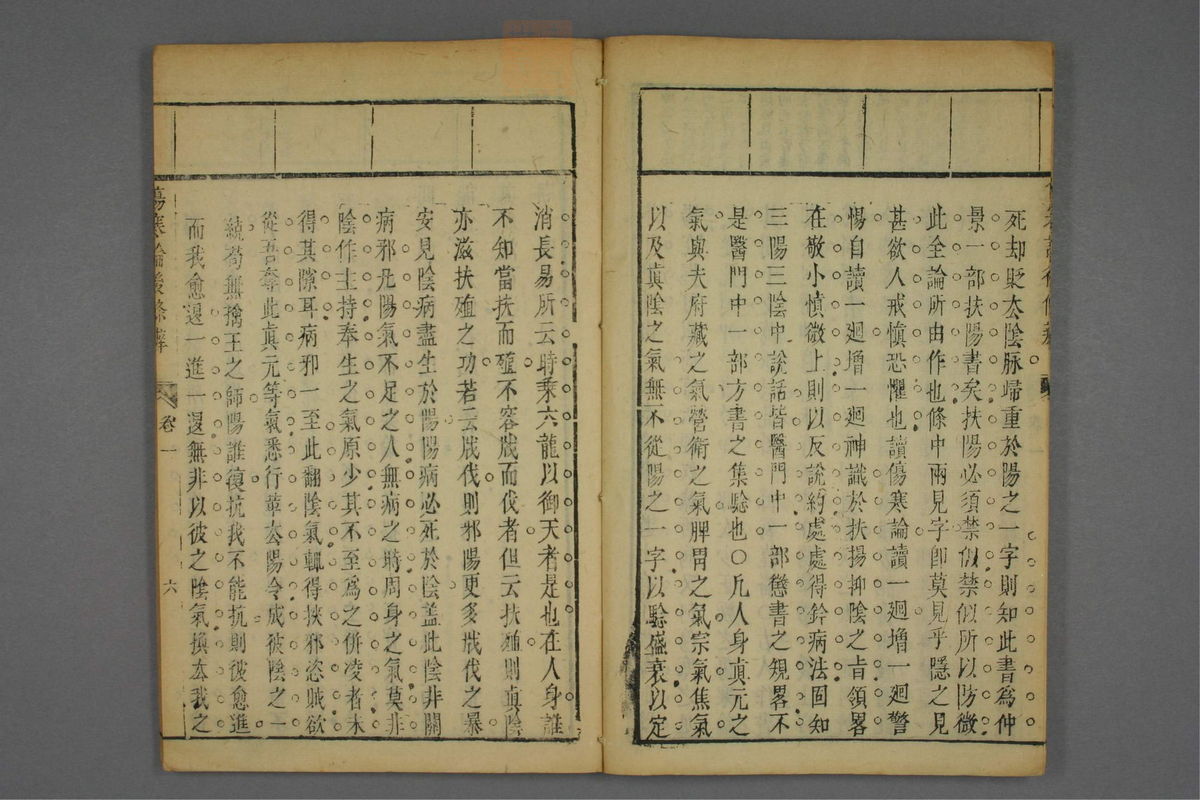 死却貶太陰脉歸重於陽之一字則知此書為仲
景一部扶陽書矣扶陽必須禁似禁似所以防微
此全論所由作也條中兩見字卽莫見乎隱之見
甚欲人戒慎恐懼也讀傷寒論讀一廻增一廻警
惕自讀一廻增一廻神識於扶揚抑陰之旨領畧
在敬小慎微上則以反說約處處得鈐病法固知
三陽三陰中說話皆醫門中一部懲書之規畧不
是醫門中一部方書之集驗也○凡人身真元之
氣與夫府藏之氣營衛之氣脾胃之氣宗氣焦氣
以及真陰之氣無不從陽之一字以驗盛衰以定
消長易所云時乘六龍以御天者是也在人身誰
不知當扶而殖不容戕而伐者但云扶殖則真陰
亦滋扶殖之功若云戕伐則邪陽更多戕伐之暴
安見陰病盡生於陽陽病必死於陰蓋此陰非關
病邪凡陽氣不足之人無病之時周身之氣莫非
陰作主持奉生之氣原少其不至為之併凌者未
得其隙耳病邪一至此翻陰氣輒得挾邪恣賊欲
從吾奪此真元等氣悉行革去陽令成彼陰之一
統苟無擒王之師陽誰復抗我不能抗則彼愈進
而我愈退一進一退無非以彼之陰氣換去我之
傷寒論後條辨
卷一
六